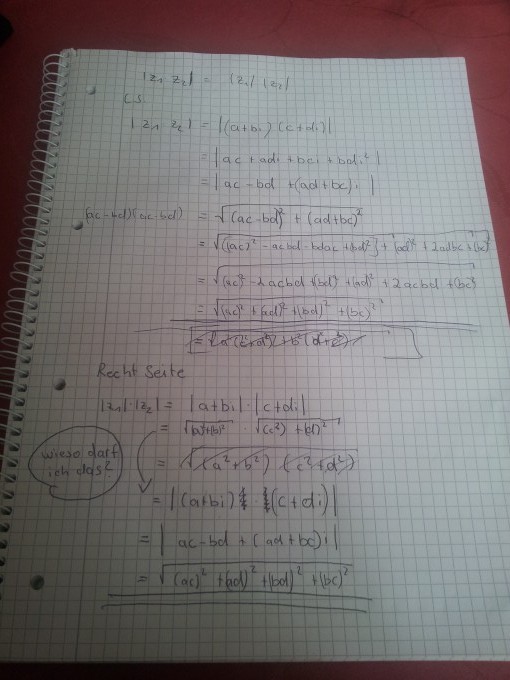 |z₁ z₂| = |z₁| |z₂|
LS
|z₁ z₂| = |(a+bi) (c+di)|
= |ac + adi + bci + bdi²|
= |ac - bd + (ad+bc)i|
(ac-bd)(ac-bd) = √((ac-bd)² + (ad+bc)²)
= √((ac)² - acbd - bdac + (bd)²) + (ad)² + 2adbc + (bc)²
= √((ac)² - 2acbd + (bd)² + (ad)² + 2acbd + (bc)²
= √((ac)² + (ad)² + (bd)² + (bc)²
Recht Seite
|z₁|·|z₂| = |a+bi| · |c+di|
= √((a)²+(b)²) · √((c²) + (d)²
wieso darf
ich das?
= √((a²+b²) · (c²+d²))
= |(a+bi) · (c+di)|
= |ac-bd + (ad+bc)i|
= √((ac)² + (ad)² + (bd)² + (bc)²